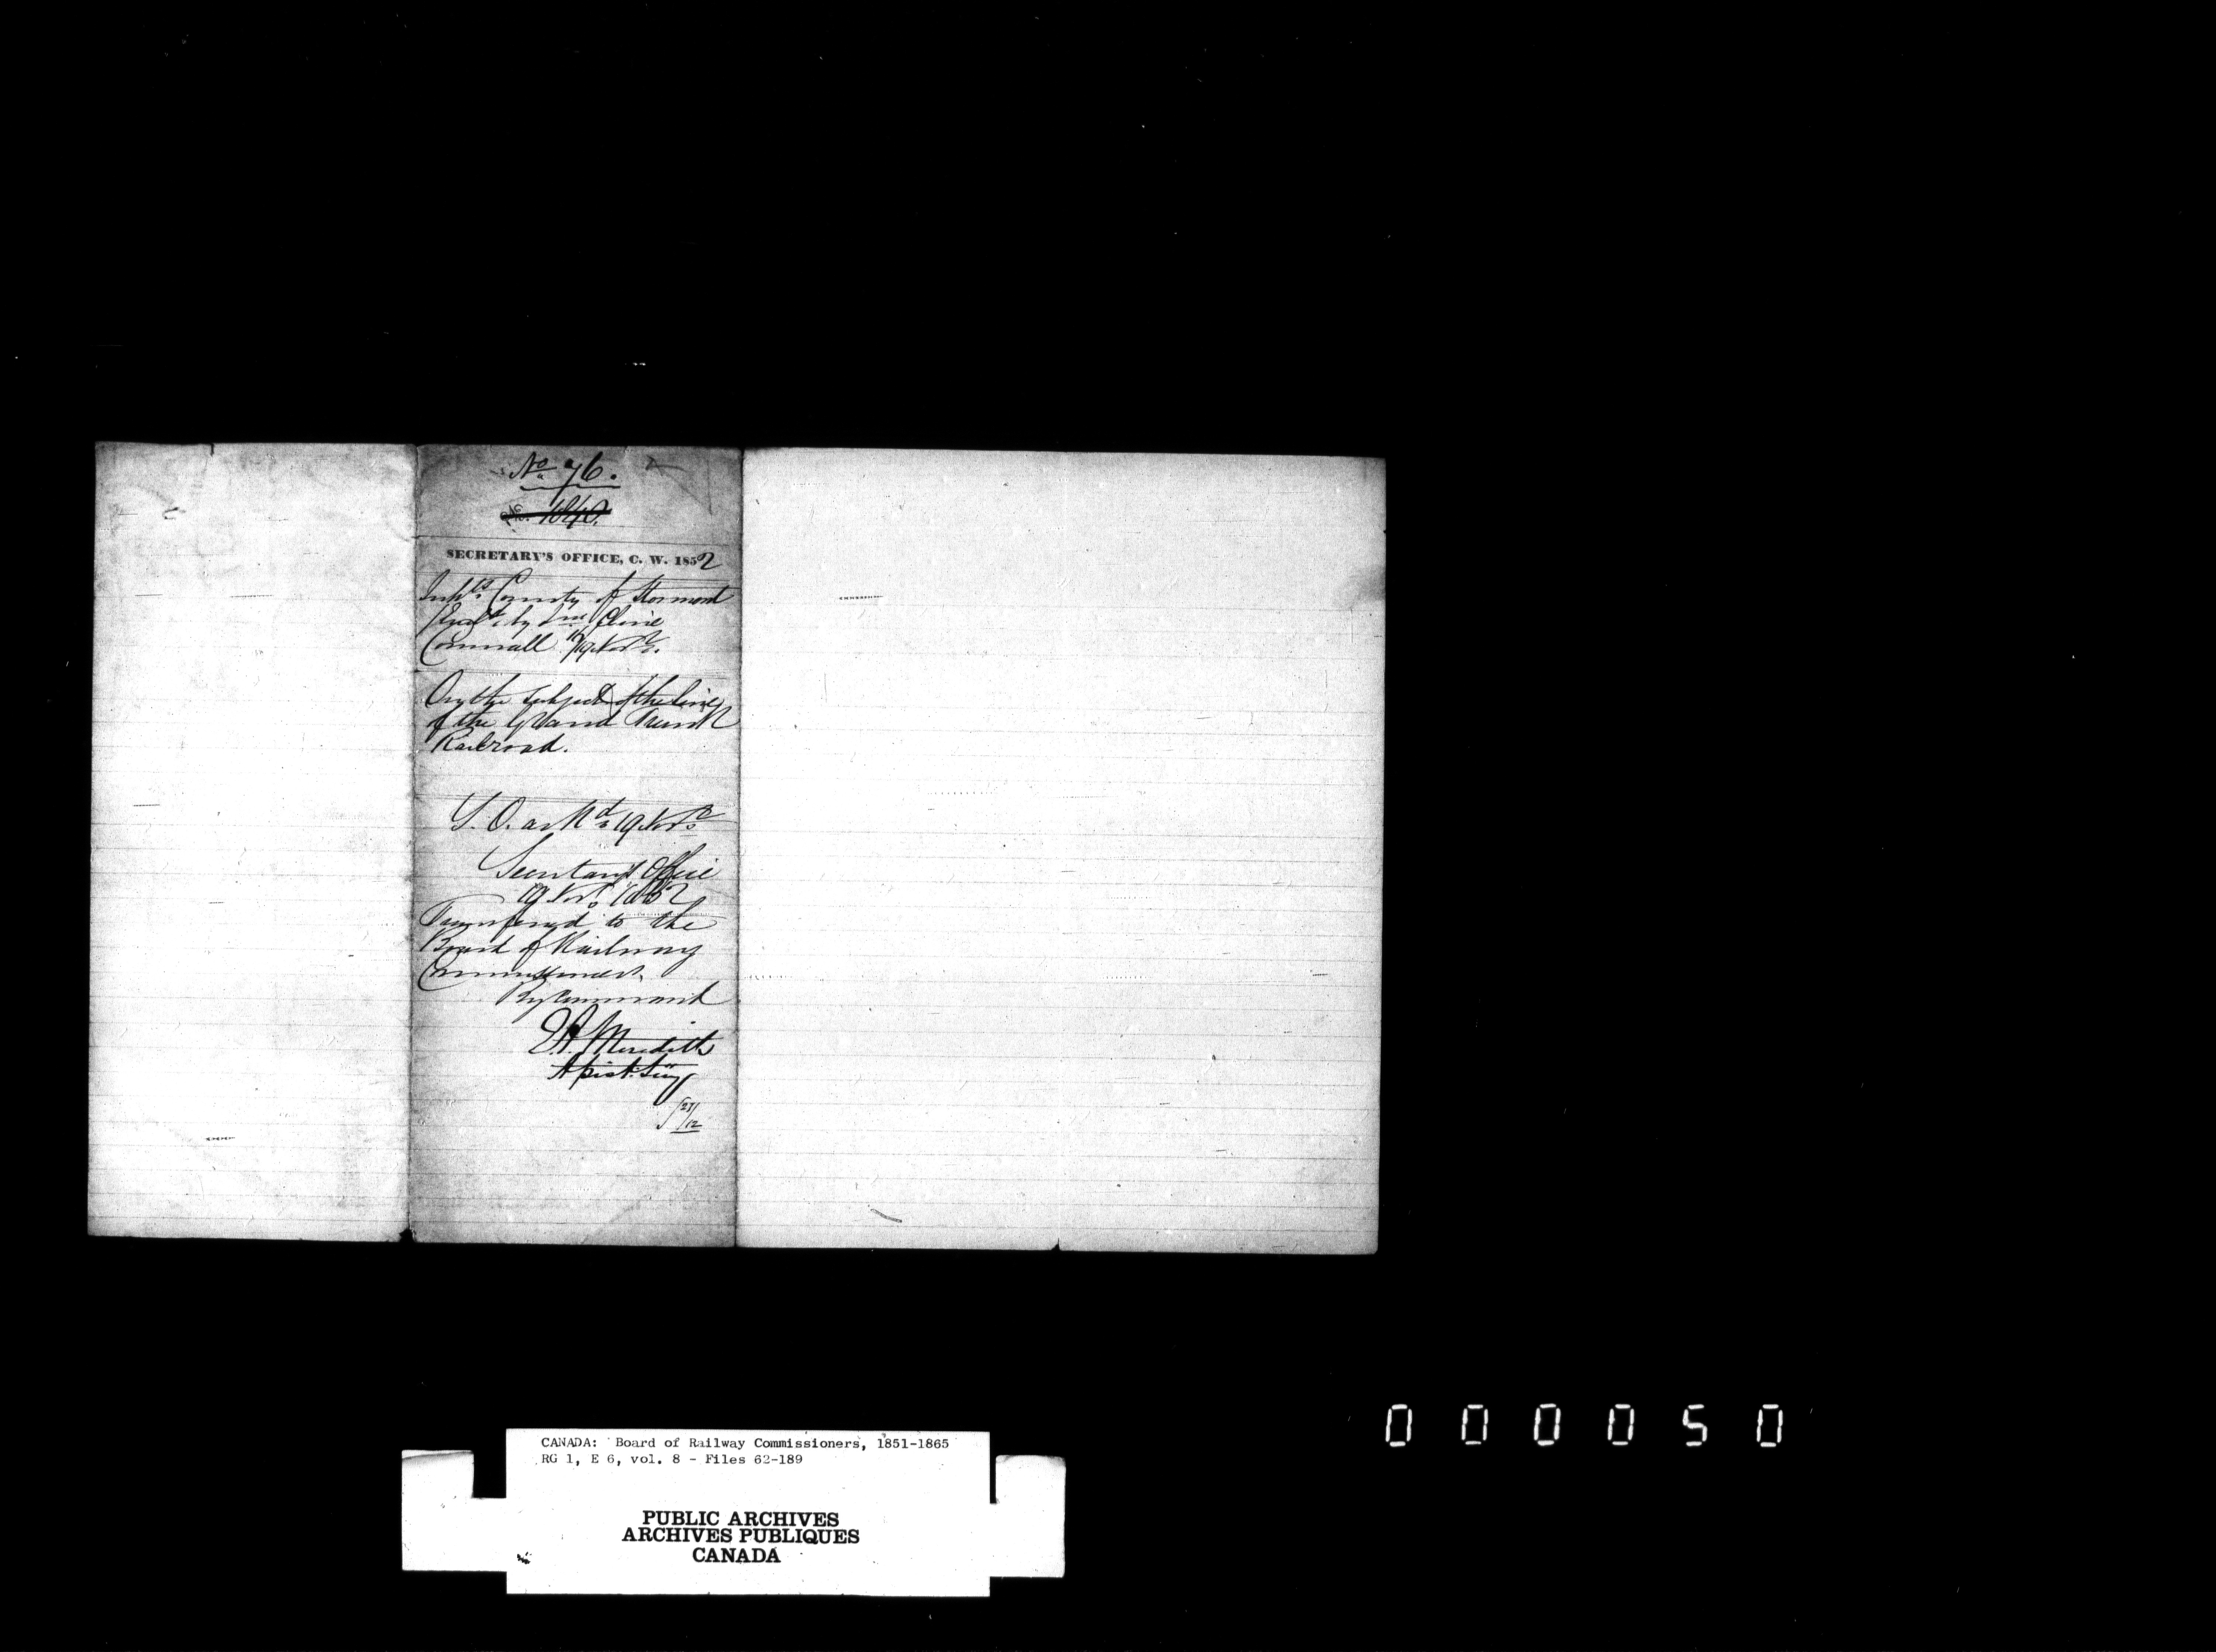 No 76.
No. 1840.
SECRETARY'S OFFICE, C. W. 1852
Inhts County of Stormont
by Cline
Cornwall Novr.
On the subject of the line
of the Grand Trunk
Railroad.
L. O. 19 Novr
Secretary's Office
19 Novr. 1852
Transferred to the
Board of Railway
Commissioners.
By Command
E. A. Meredith
Assist. Secy
23/12
000050
CANADA: Board of Railway Commissioners, 1851-1865
RG 1, E 6, vol. 8 - Files 62-189
PUBLIC ARCHIVES
ARCHIVES PUBLIQUES
CANADA